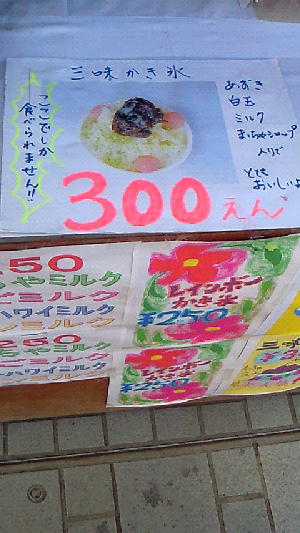 三味かき氷
ここでしか
食べられません!!
あずき
白玉
ミルク
まっちゃシロップ
入りで
とても
おいしいよ
300えん
250
ちゃミルク
ミルク
ハワイミルク
ミルク
レインボー
かき氷
¥250
250
ちゃミルク
ミルク
ハワイミルク
ミルク
レインボー
かき氷
¥250